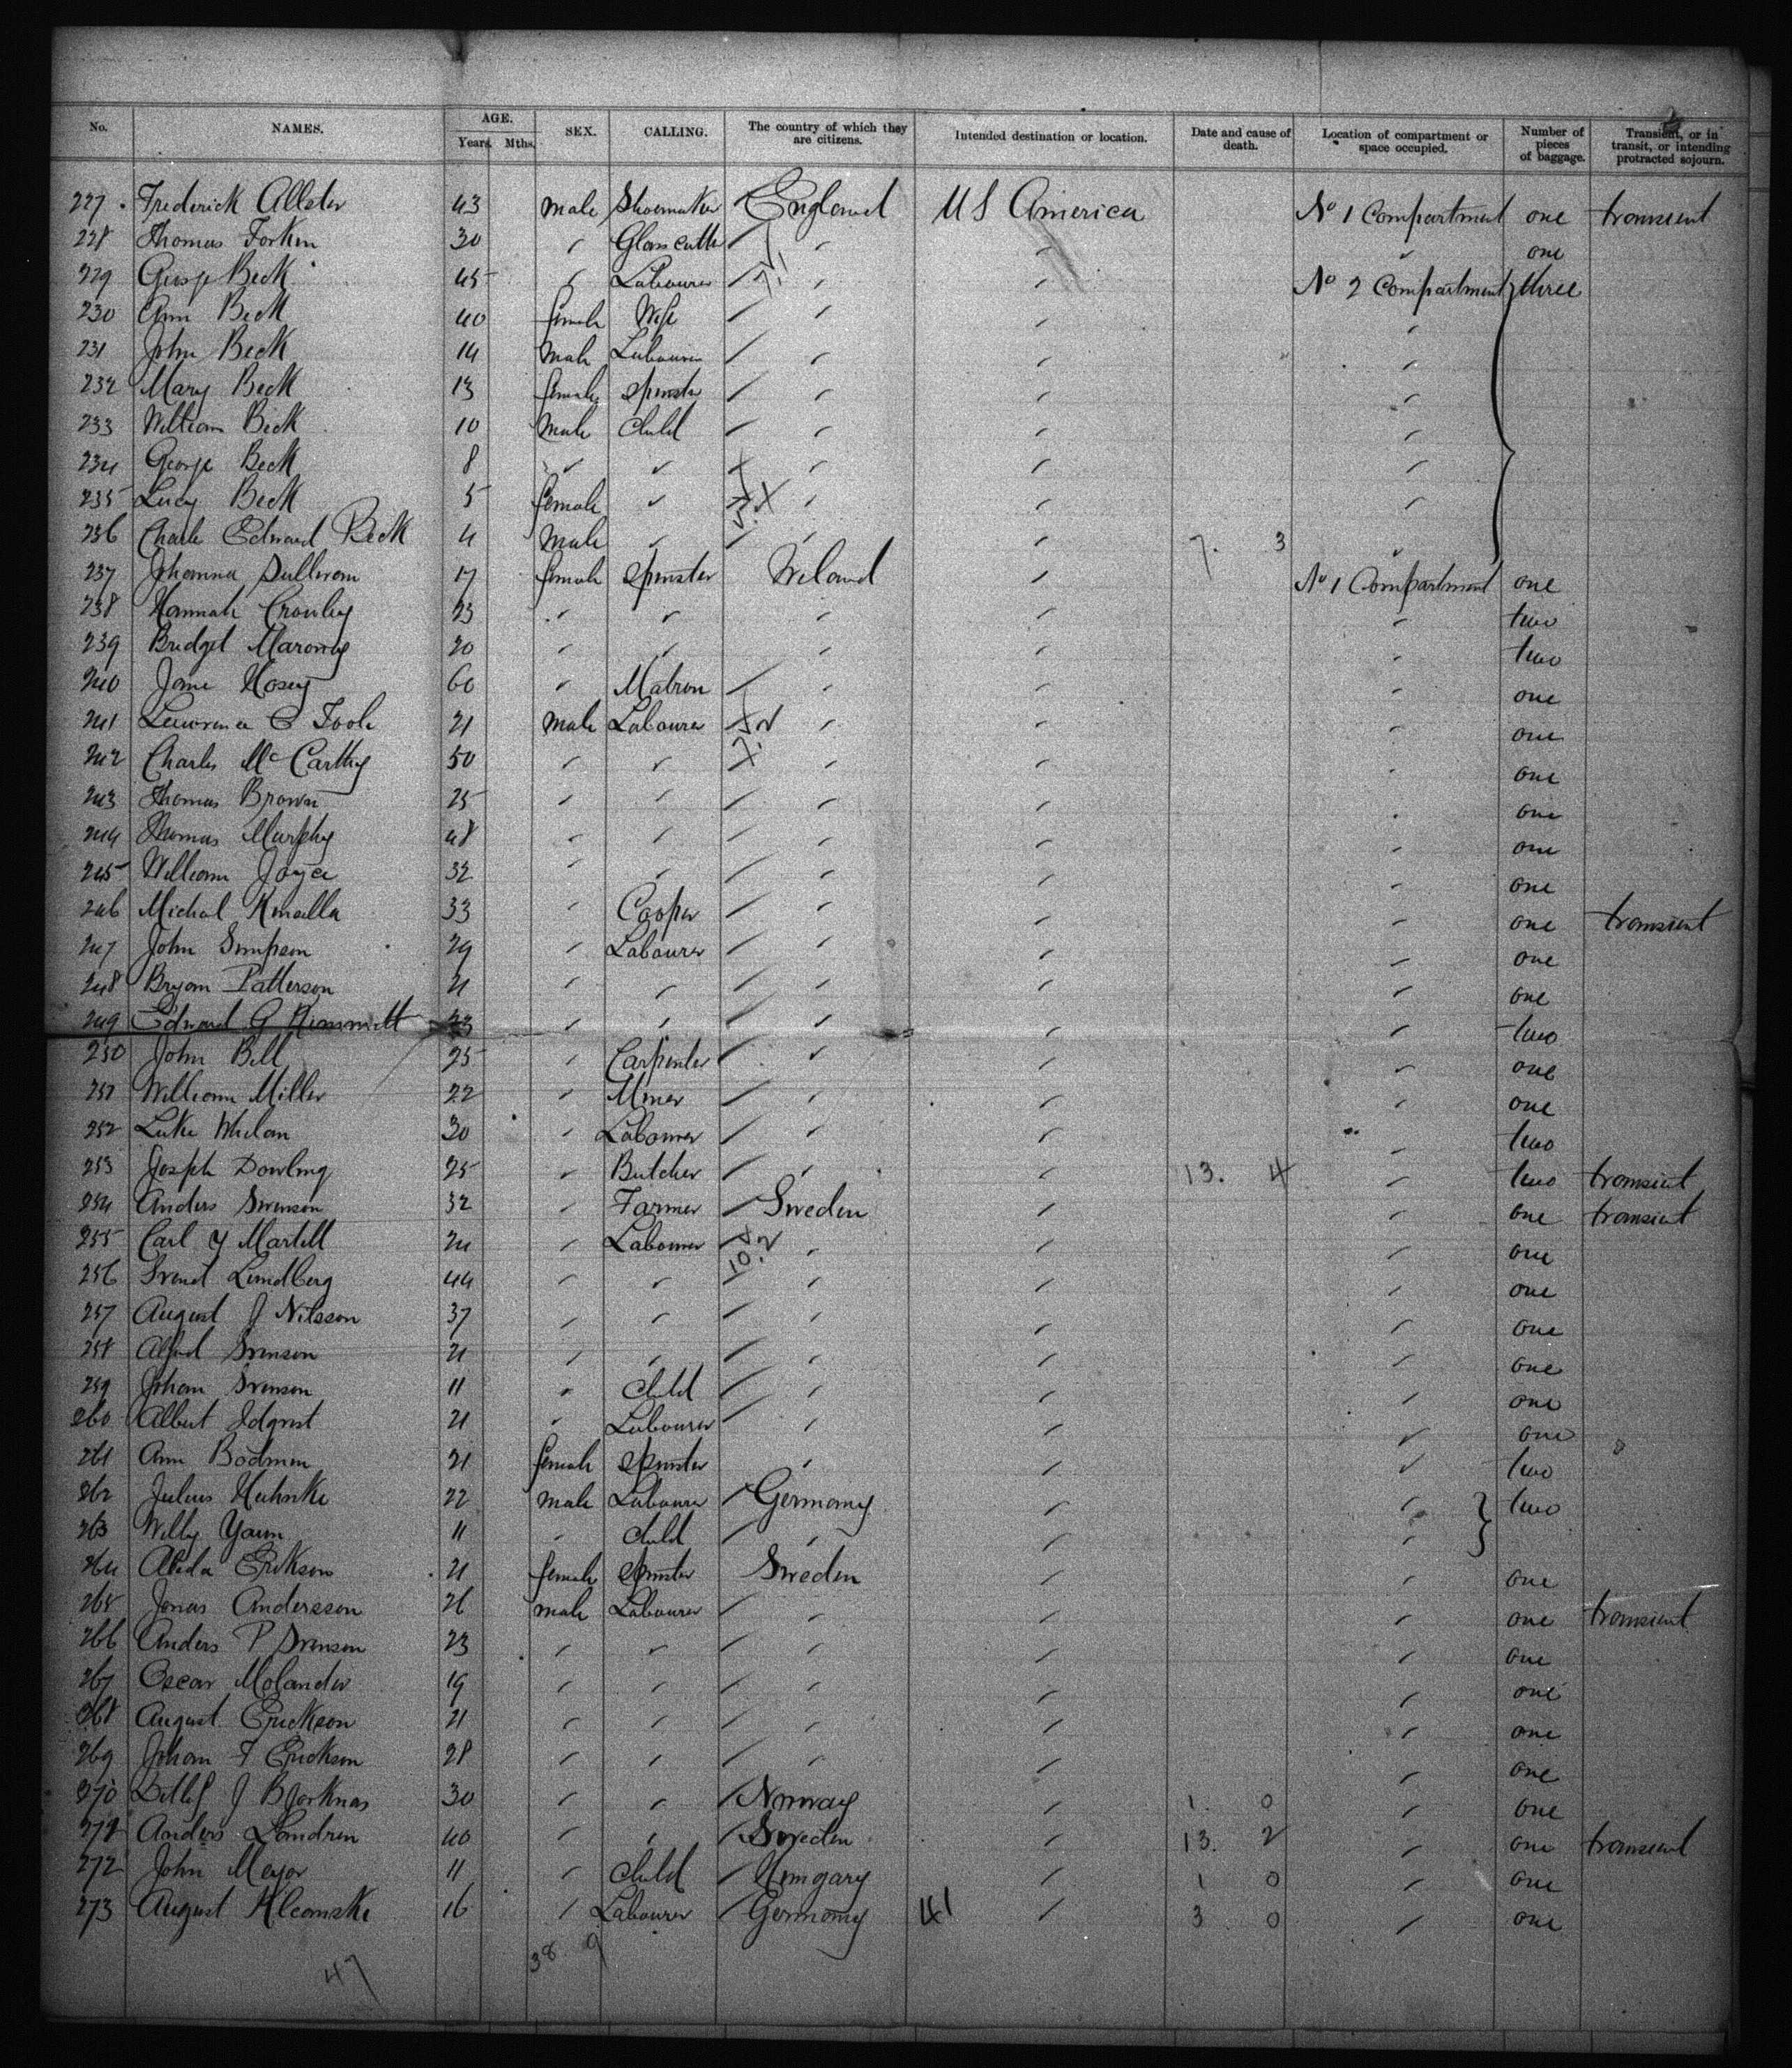 No. NAMES. AGE. Years Mths. SEX. CALLING. The country of which they are citizens. Intended destination or location. Date and cause of death. Location of compartment or space occupied. Number of pieces of baggage. Transient, or in transit, or intending protracted sojourn.
227 Frederick Allster 43 male Shoemaker England U S America No 1 Compartment one transient
228 Thomas 30 " Glass cutter " " " one
229 George Beck 45 " Labourer " " No 2 Compartment three
230 Ann Beck 40 female Wife " " "
231 John Beck 14 male Labourer " " "
232 Mary Beck 13 female Spinster " " "
233 William Beck 10 male Child " " "
234 George Beck 8 " " " " "
235 Lucy Beck 5 female " " " "
236 Charles Edward Beck 4 male " " " 7. 3 "
237 Johanna Sullivan 17 female Spinster Ireland " No 1 Compartment one
238 Hannah Crowley 23 " " " " " two
239 Bridget Marony 20 " " " " " two
240 Jane Hosey 60 " Matron " " " one
241 Lawrence O Toole 21 male Labourer " " " one
242 Charles McCarthy 50 " " " " " one
243 Thomas Brown 25 " " " " " one
244 Thomas Murphy 48 " " " " " one
245 William Joyce 32 " " " " " one
246 Michael 33 " Cooper " " " one transient
247 John Simpson 29 " Labourer " " " one
248 Bryan Patterson 21 " " " " " one
249 Edward G 23 " " " " " two
250 John Bell 25 " Carpenter " " " one
251 William Miller 22 " Miner " " " one
252 Luke Whelan 30 " Labourer " " " two
253 Joseph Dowling 25 " Butcher " " 13. 4 " two transient
254 Anders Swenson 32 " Farmer Sweden " " one transient
255 Carl Y Martell 24 " Labourer " " " one
256 Svend Lundberg 44 " " " " " one
257 August J Nilsson 37 " " " " " one
258 Alfred Svenson 21 " " " " " one
259 Johan Svenson 11 " Child " " " one
260 Albert Idqvist 21 " Labourer " " " one
261 Ann Bodman 21 female Spinster " " " two
262 Julius Huhnke 22 male Labourer Germany " " two
263 Willy 11 " child " " "
264 Erikson 21 female Spinster Sweden " " one
265 Jonas Andersson 26 male Labourer " " " one transient
266 Anders P Svenson 23 " " " " " one
267 Oscar Molander 19 " " " " " one
268 August Erickson 21 " " " " " one
269 Johan F Erickson 28 " " " " " one
270 J Bjorknas 30 " " Norway " 1 0 " one
271 Anders Landren 40 " " Sweden " 13. 2 " one transient
272 John Meyor 11 " Child Hungary " 1 0 " one
273 August 16 " Labourer Germany 41 " 3 0 " one
47 38 9